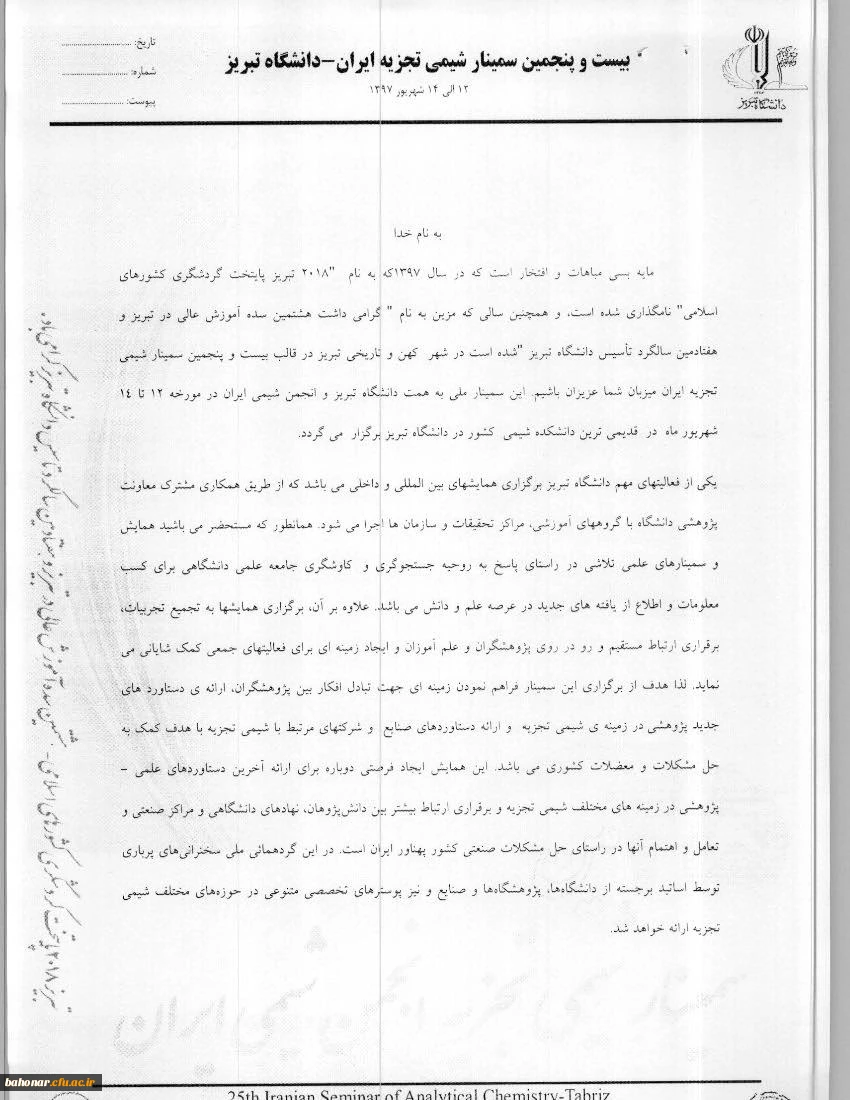 تاریخ: ............................
شماره: ............................
پیوست: ............................
بیست و پنجمین سمینار شیمی تجزیه ایران-دانشگاه تبریز
۱۲ الی ۱۴ شهریور ۱۳۹۷
دانشگاه تبریز
به نام خدا
مایه بسی مباهات و افتخار است که در سال ۱۳۹۷که به نام "۲۰۱۸ تبریز پایتخت گردشگری کشورهای
اسلامی" نامگذاری شده است، و همچنین سالی که مزین به نام " گرامی داشت هشتمین سده آموزش عالی در تبریز و
هفتادمین سالگرد تأسیس دانشگاه تبریز "شده است در شهر کهن و تاریخی تبریز در قالب بیست و پنجمین سمینار شیمی
تجزیه ایران میزبان شما عزیزان باشیم. این سمینار ملی به همت دانشگاه تبریز و انجمن شیمی ایران در مورخه ۱۲ تا ۱۴
شهریور ماه در قدیمی ترین دانشکده شیمی کشور در دانشگاه تبریز برگزار می گردد.
یکی از فعالیتهای مهم دانشگاه تبریز برگزاری همایشهای بین المللی و داخلی می باشد که از طریق همکاری مشترک معاونت
پژوهشی دانشگاه با گروههای آموزشی، مراکز تحقیقات و سازمان ها اجرا می شود. همانطور که مستحضر می باشید همایش
و سمینارهای علمی تلاشی در راستای پاسخ به روحیه جستجوگری و کاوشگری جامعه علمی دانشگاهی برای کسب
معلومات و اطلاع از یافته های جدید در عرصه علم و دانش می باشد. علاوه بر آن، برگزاری همایشها به تجمیع تجربیات،
برقراری ارتباط مستقیم و رو در روی پژوهشگران و علم آموزان و ایجاد زمینه ای برای فعالیتهای جمعی کمک شایانی می
نماید. لذا هدف از برگزاری این سمینار فراهم نمودن زمینه ای جهت تبادل افکار بین پژوهشگران، ارائه ی دستاورد های
جدید پژوهشی در زمینه ی شیمی تجزیه و ارائه دستاوردهای صنایع و شرکتهای مرتبط با شیمی تجزیه با هدف کمک به
حل مشکلات و معضلات کشوری می باشد. این همایش ایجاد فرصتی دوباره برای ارائه آخرین دستاوردهای علمی -
پژوهشی در زمینه های مختلف شیمی تجزیه و برقراری ارتباط بیشتر بین دانش‌پژوهان، نهادهای دانشگاهی و مراکز صنعتی و
تعامل و اهتمام آنها در راستای حل مشکلات صنعتی کشور پهناور ایران است. در این گردهمائی ملی سخنرانی‌های پرباری
توسط اساتید برجسته از دانشگاه‌ها، پژوهشگاه‌ها و صنایع و نیز پوسترهای تخصصی متنوعی در حوزه‌های مختلف شیمی
تجزیه ارائه خواهد شد.
تبریز ۲۰۱۸ پایتخت گردشگری کشورهای اسلامی - هشتمین سده آموزش عالی در تبریز و هفتادمین سالگرد تاسیس دانشگاه تبریز گرامی باد.
انجمن شیمی ایران
bahonar.cfu.ac.ir
25th Iranian Seminar of Analytical Chemistry-Tabriz